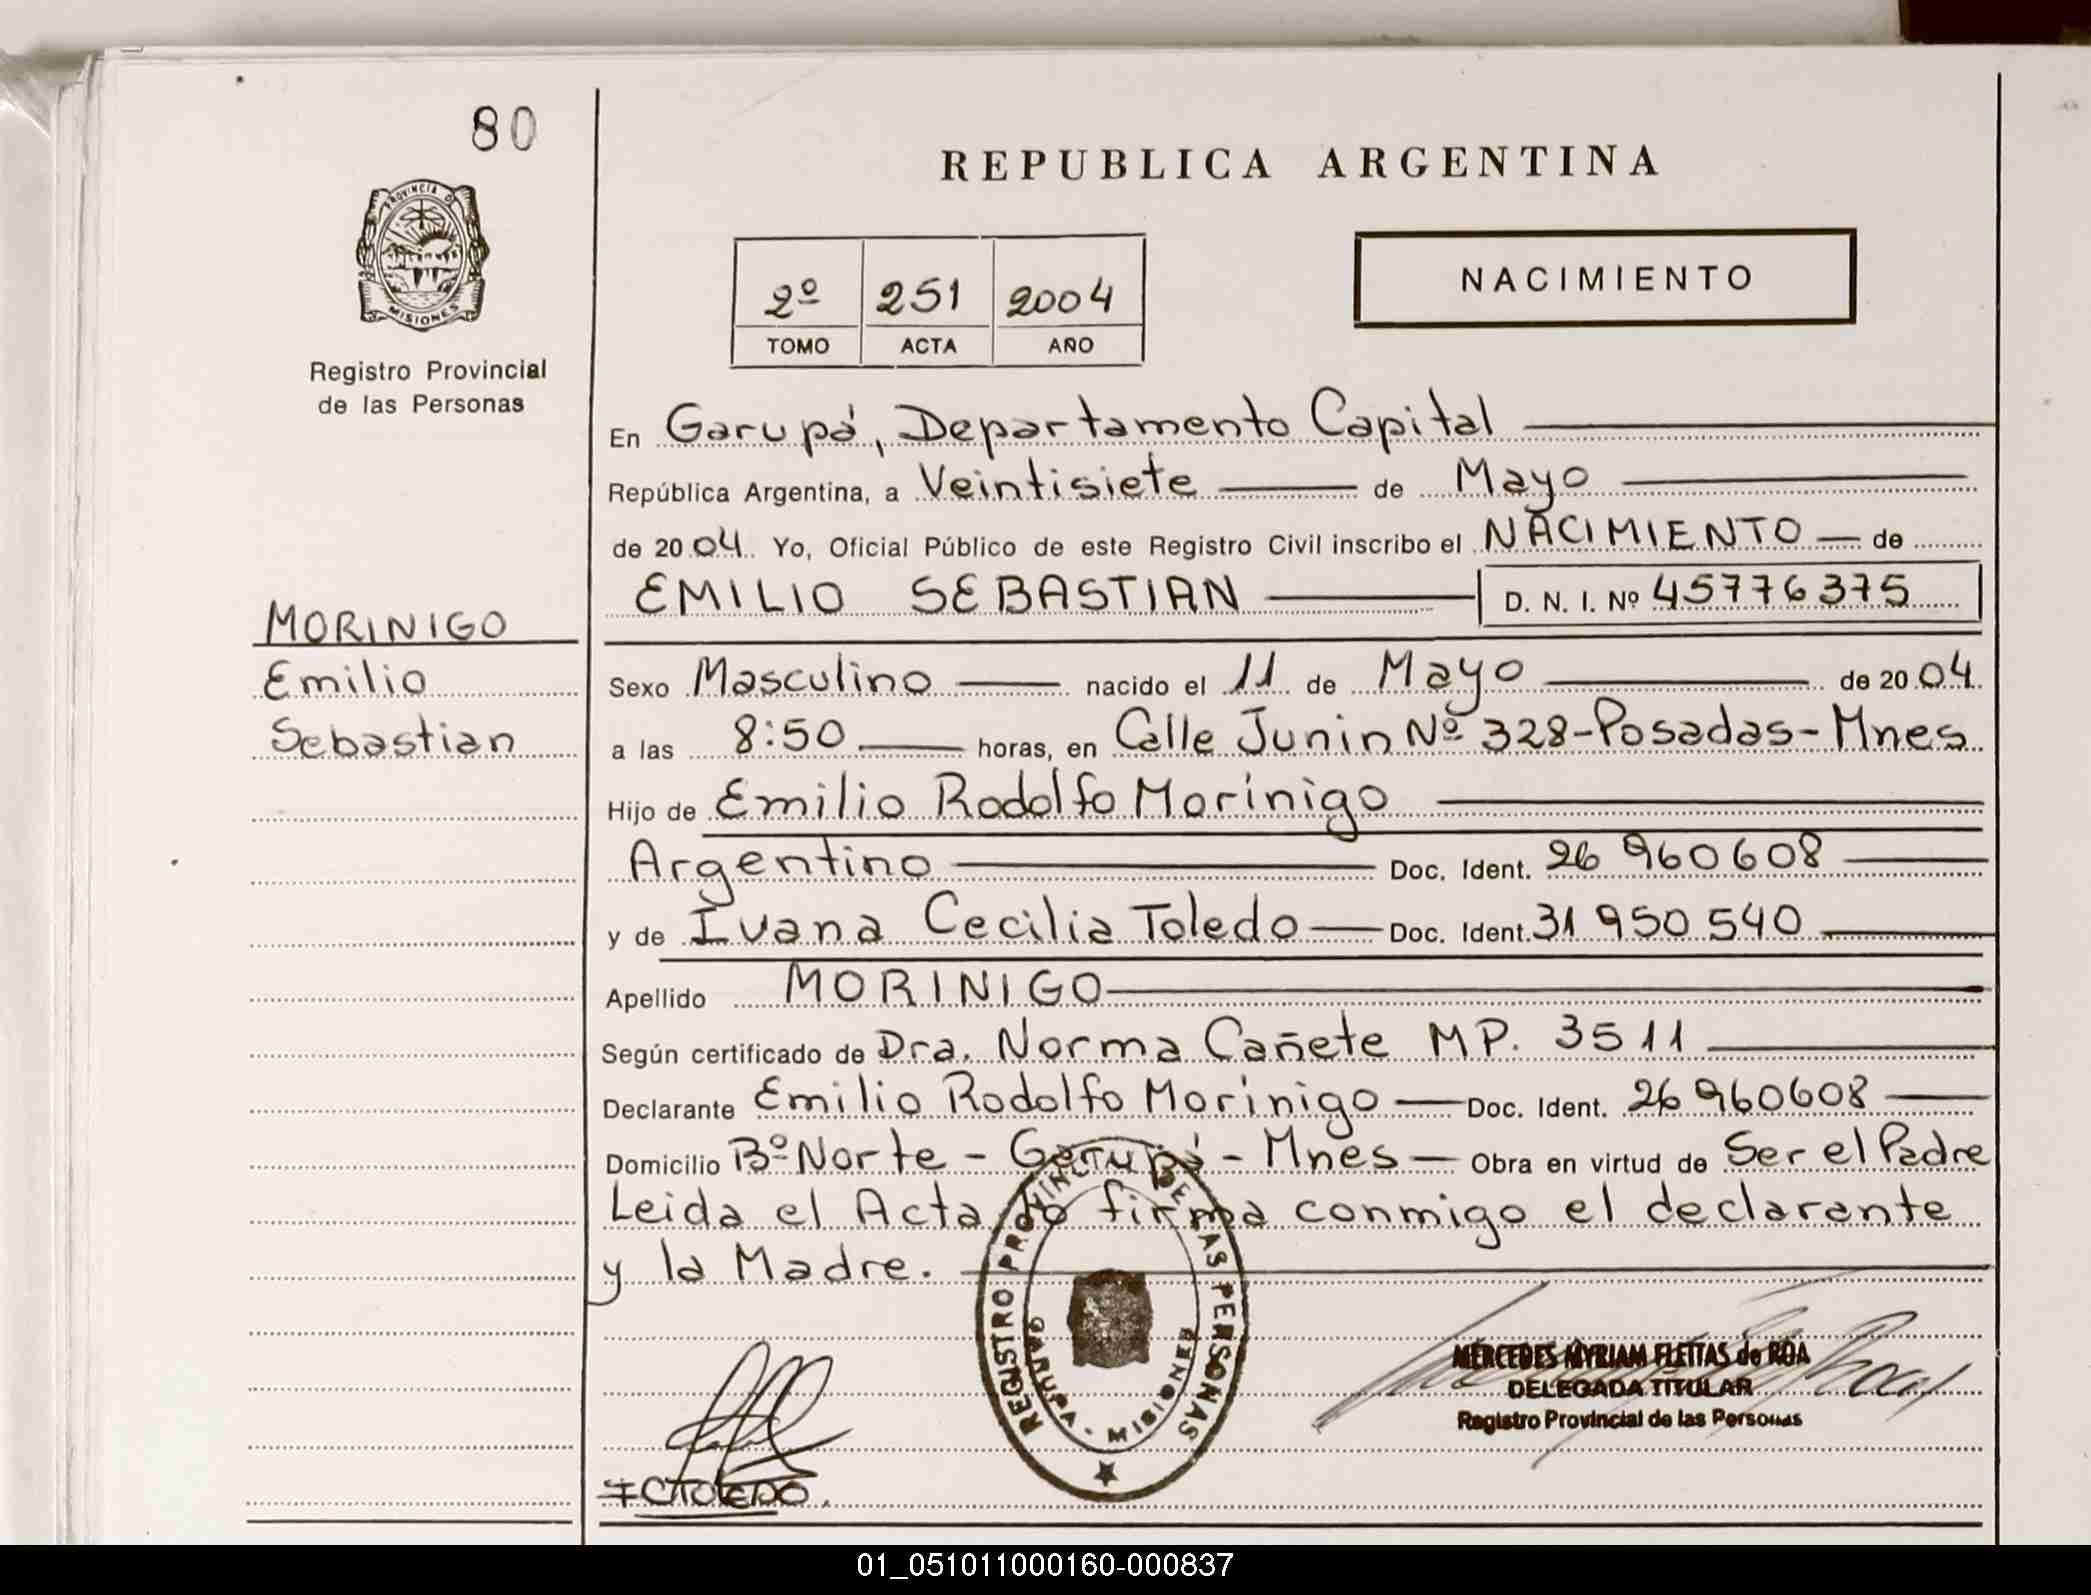 80
PROVINCIA DE
MISIONES
Registro Provincial
de las Personas
MORINIGO
Emilio
Sebastian
REPUBLICA ARGENTINA
2º 251 2004
TOMO ACTA AÑO
NACIMIENTO
En Garupá, Departamento Capital
República Argentina, a Veintisiete de Mayo
de 2004. Yo, Oficial Público de este Registro Civil inscribo el NACIMIENTO de
EMILIO SEBASTIAN D. N. I. Nº 45776375
Sexo Masculino nacido el 11 de Mayo de 2004
a las 8:50 horas, en Calle Junin Nº 328-Posadas-Mnes
Hijo de Emilio Rodolfo Morinigo
Argentino Doc. Ident. 26 960608
y de Ivana Cecilia Toledo Doc. Ident. 31 950 540
Apellido MORINIGO
Según certificado de Dra. Norma Cañete MP. 3511
Declarante Emilio Rodolfo Morinigo Doc. Ident. 26 960608
Domicilio Bº Norte - Garupá - Mnes Obra en virtud de Ser el Padre
Leida el Acta la firma conmigo el declarante
y la Madre.
REGISTRO PROVINCIAL DE LAS PERSONAS
GARUPA - MISIONES
MERCEDES MYRIAM FLEITAS de ROA
DELEGADA TITULAR
Registro Provincial de las Personas
I C TOLEDO.
01_051011000160-000837